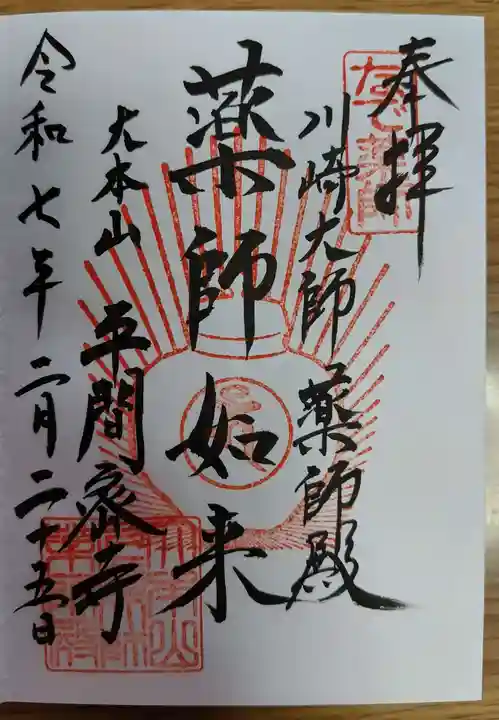 奉拝
なで薬師
川崎大師 薬師殿
薬師如来
大本山 平間寺
令和七年二月二十五日